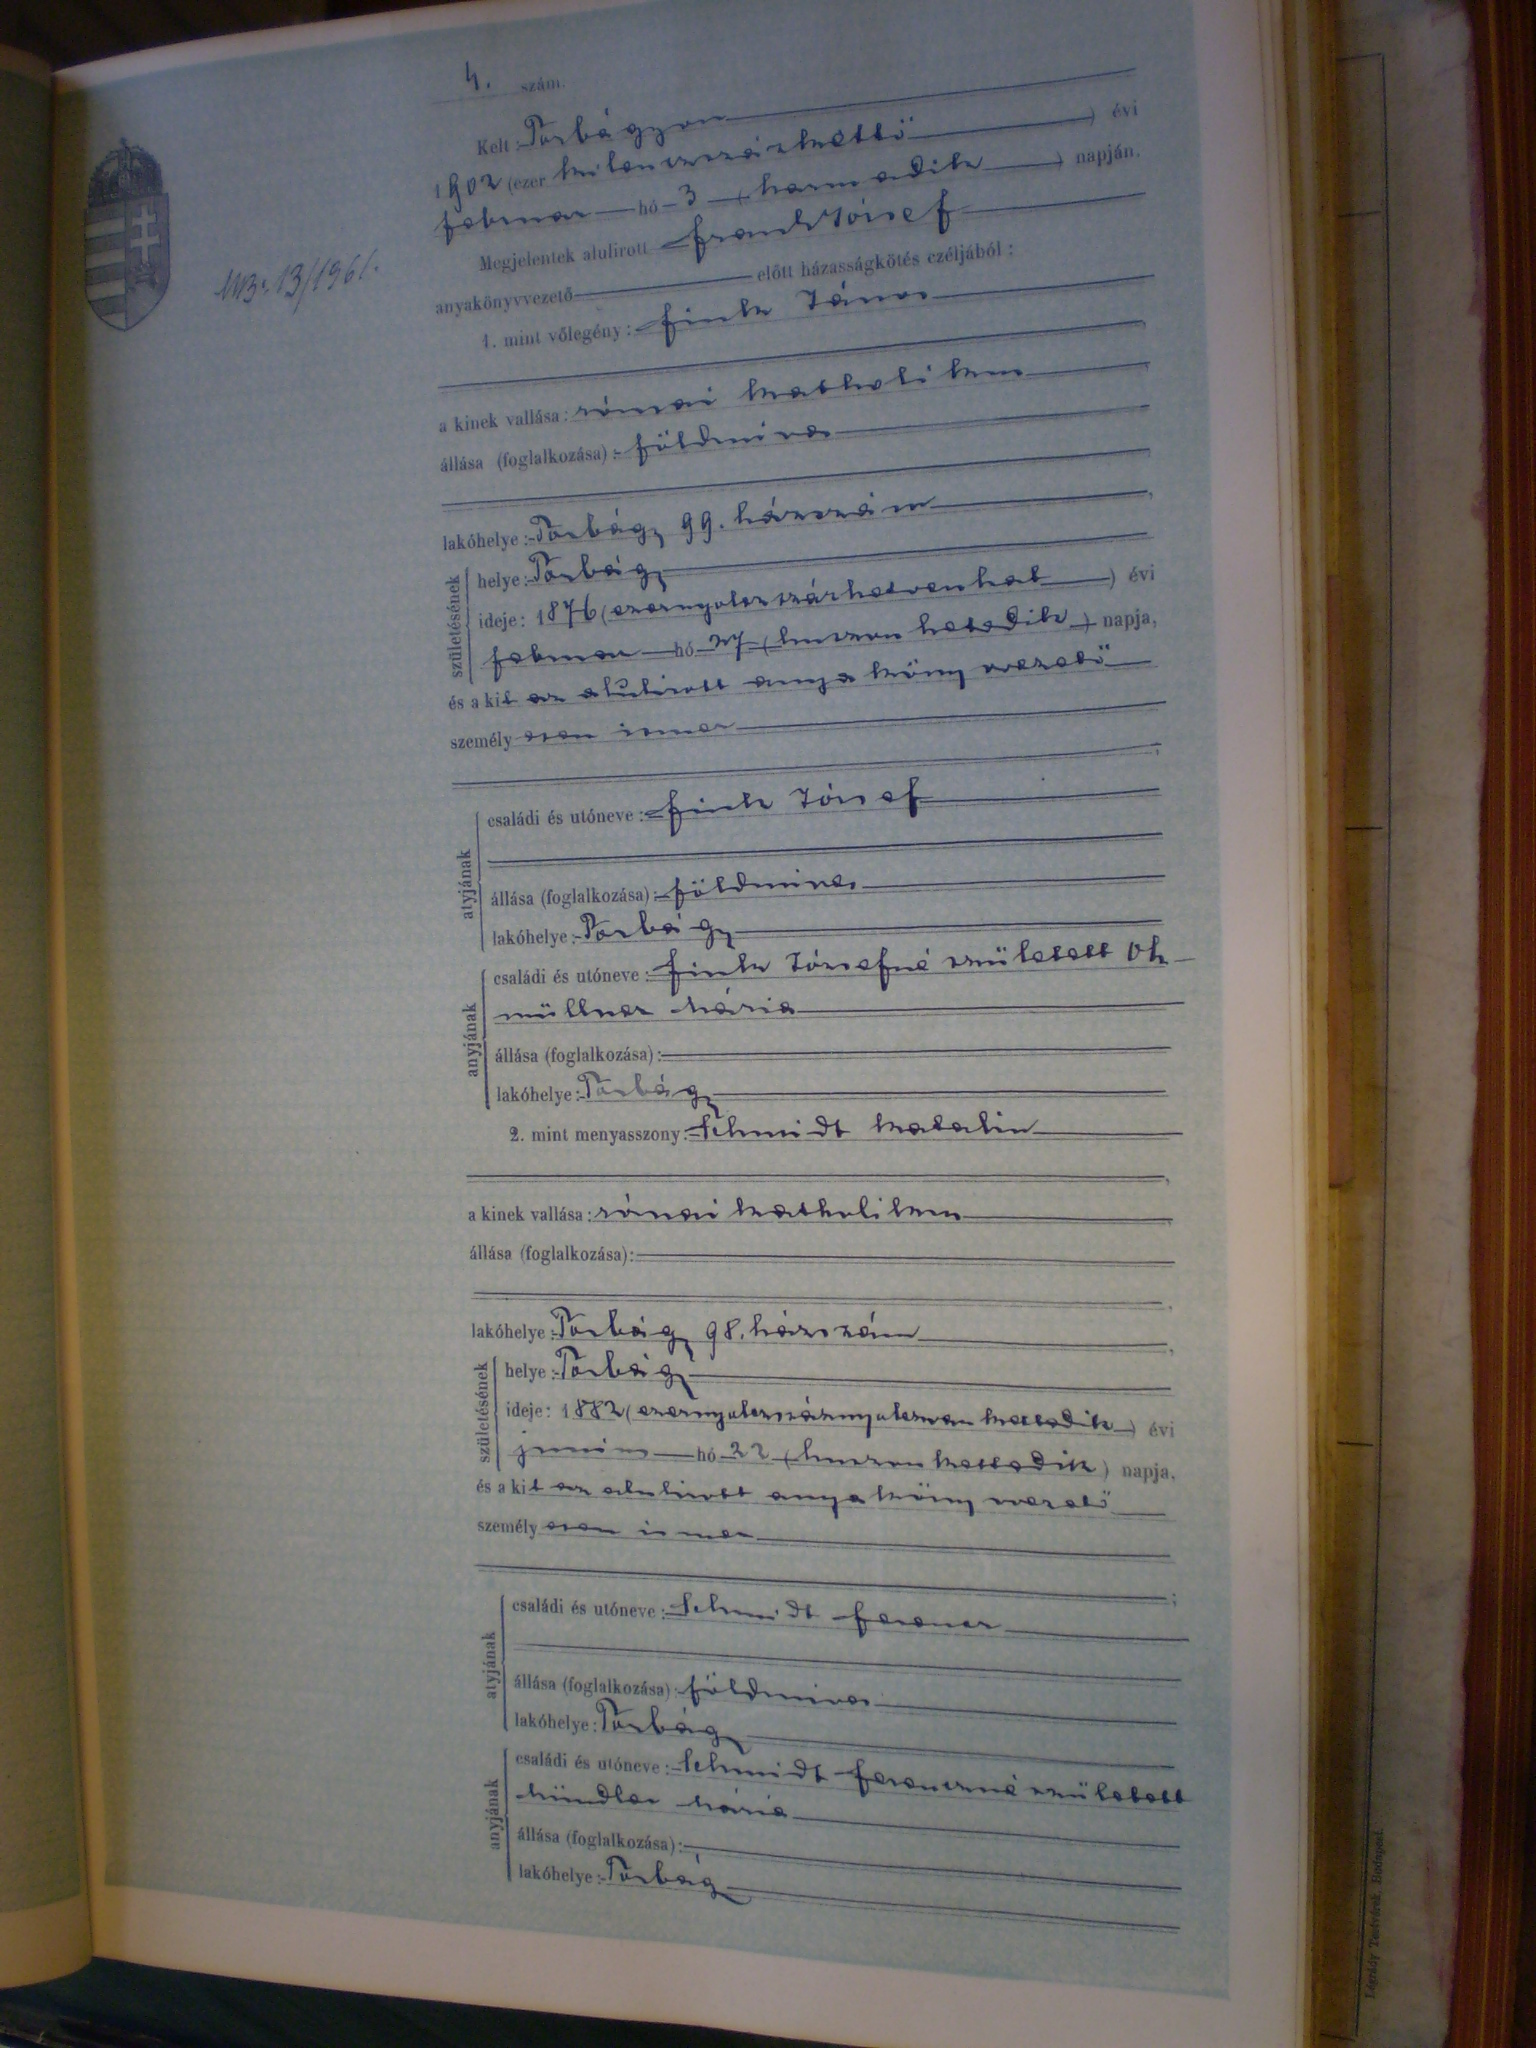 4. szám.
Kelt: Torbágyon
1902 (ezer kilenczszázkettő) évi
február hó 3 (harmadik) napján.
Megjelentek alulirott Frank József
anyakönyvvezető előtt házasságkötés czéljából:
MB: 13/1961.
1. mint vőlegény: Fink János
a kinek vallása: római katholikus
állása (foglalkozása): földmives
lakóhelye: Torbágy 99. házszám
születésének
helye: Torbágy
ideje: 1876 (ezernyolczszázhetvenhat) évi
február hó 27 (huszonhetedik) napja,
és a kit az alulirott anyakönyvvezető
személyesen ismer
atyjának
családi és utóneve: Fink József
állása (foglalkozása): földmives
lakóhelye: Torbágy
anyjának
családi és utóneve: Fink Józsefné született Oh
müllner Mária
állása (foglalkozása):
lakóhelye: Torbágy
2. mint menyasszony: Schmidt Katalin
a kinek vallása: római katholikus
állása (foglalkozása):
lakóhelye: Torbágy 98. házszám
születésének
helye: Torbágy
ideje: 1882 (ezernyolczszáznyolczvankettedik) évi
junius hó 22 (huszonkettedik) napja,
és a kit az alulirott anyakönyvvezető
személyesen ismer
;
atyjának
családi és utóneve: Schmidt Ferencz
állása (foglalkozása): földmives
lakóhelye: Torbágy
anyjának
családi és utóneve: Schmidt Ferenczné született
Mündler Mária
állása (foglalkozása):
lakóhelye: Torbágy
Légrády Testvérek, Budapest.